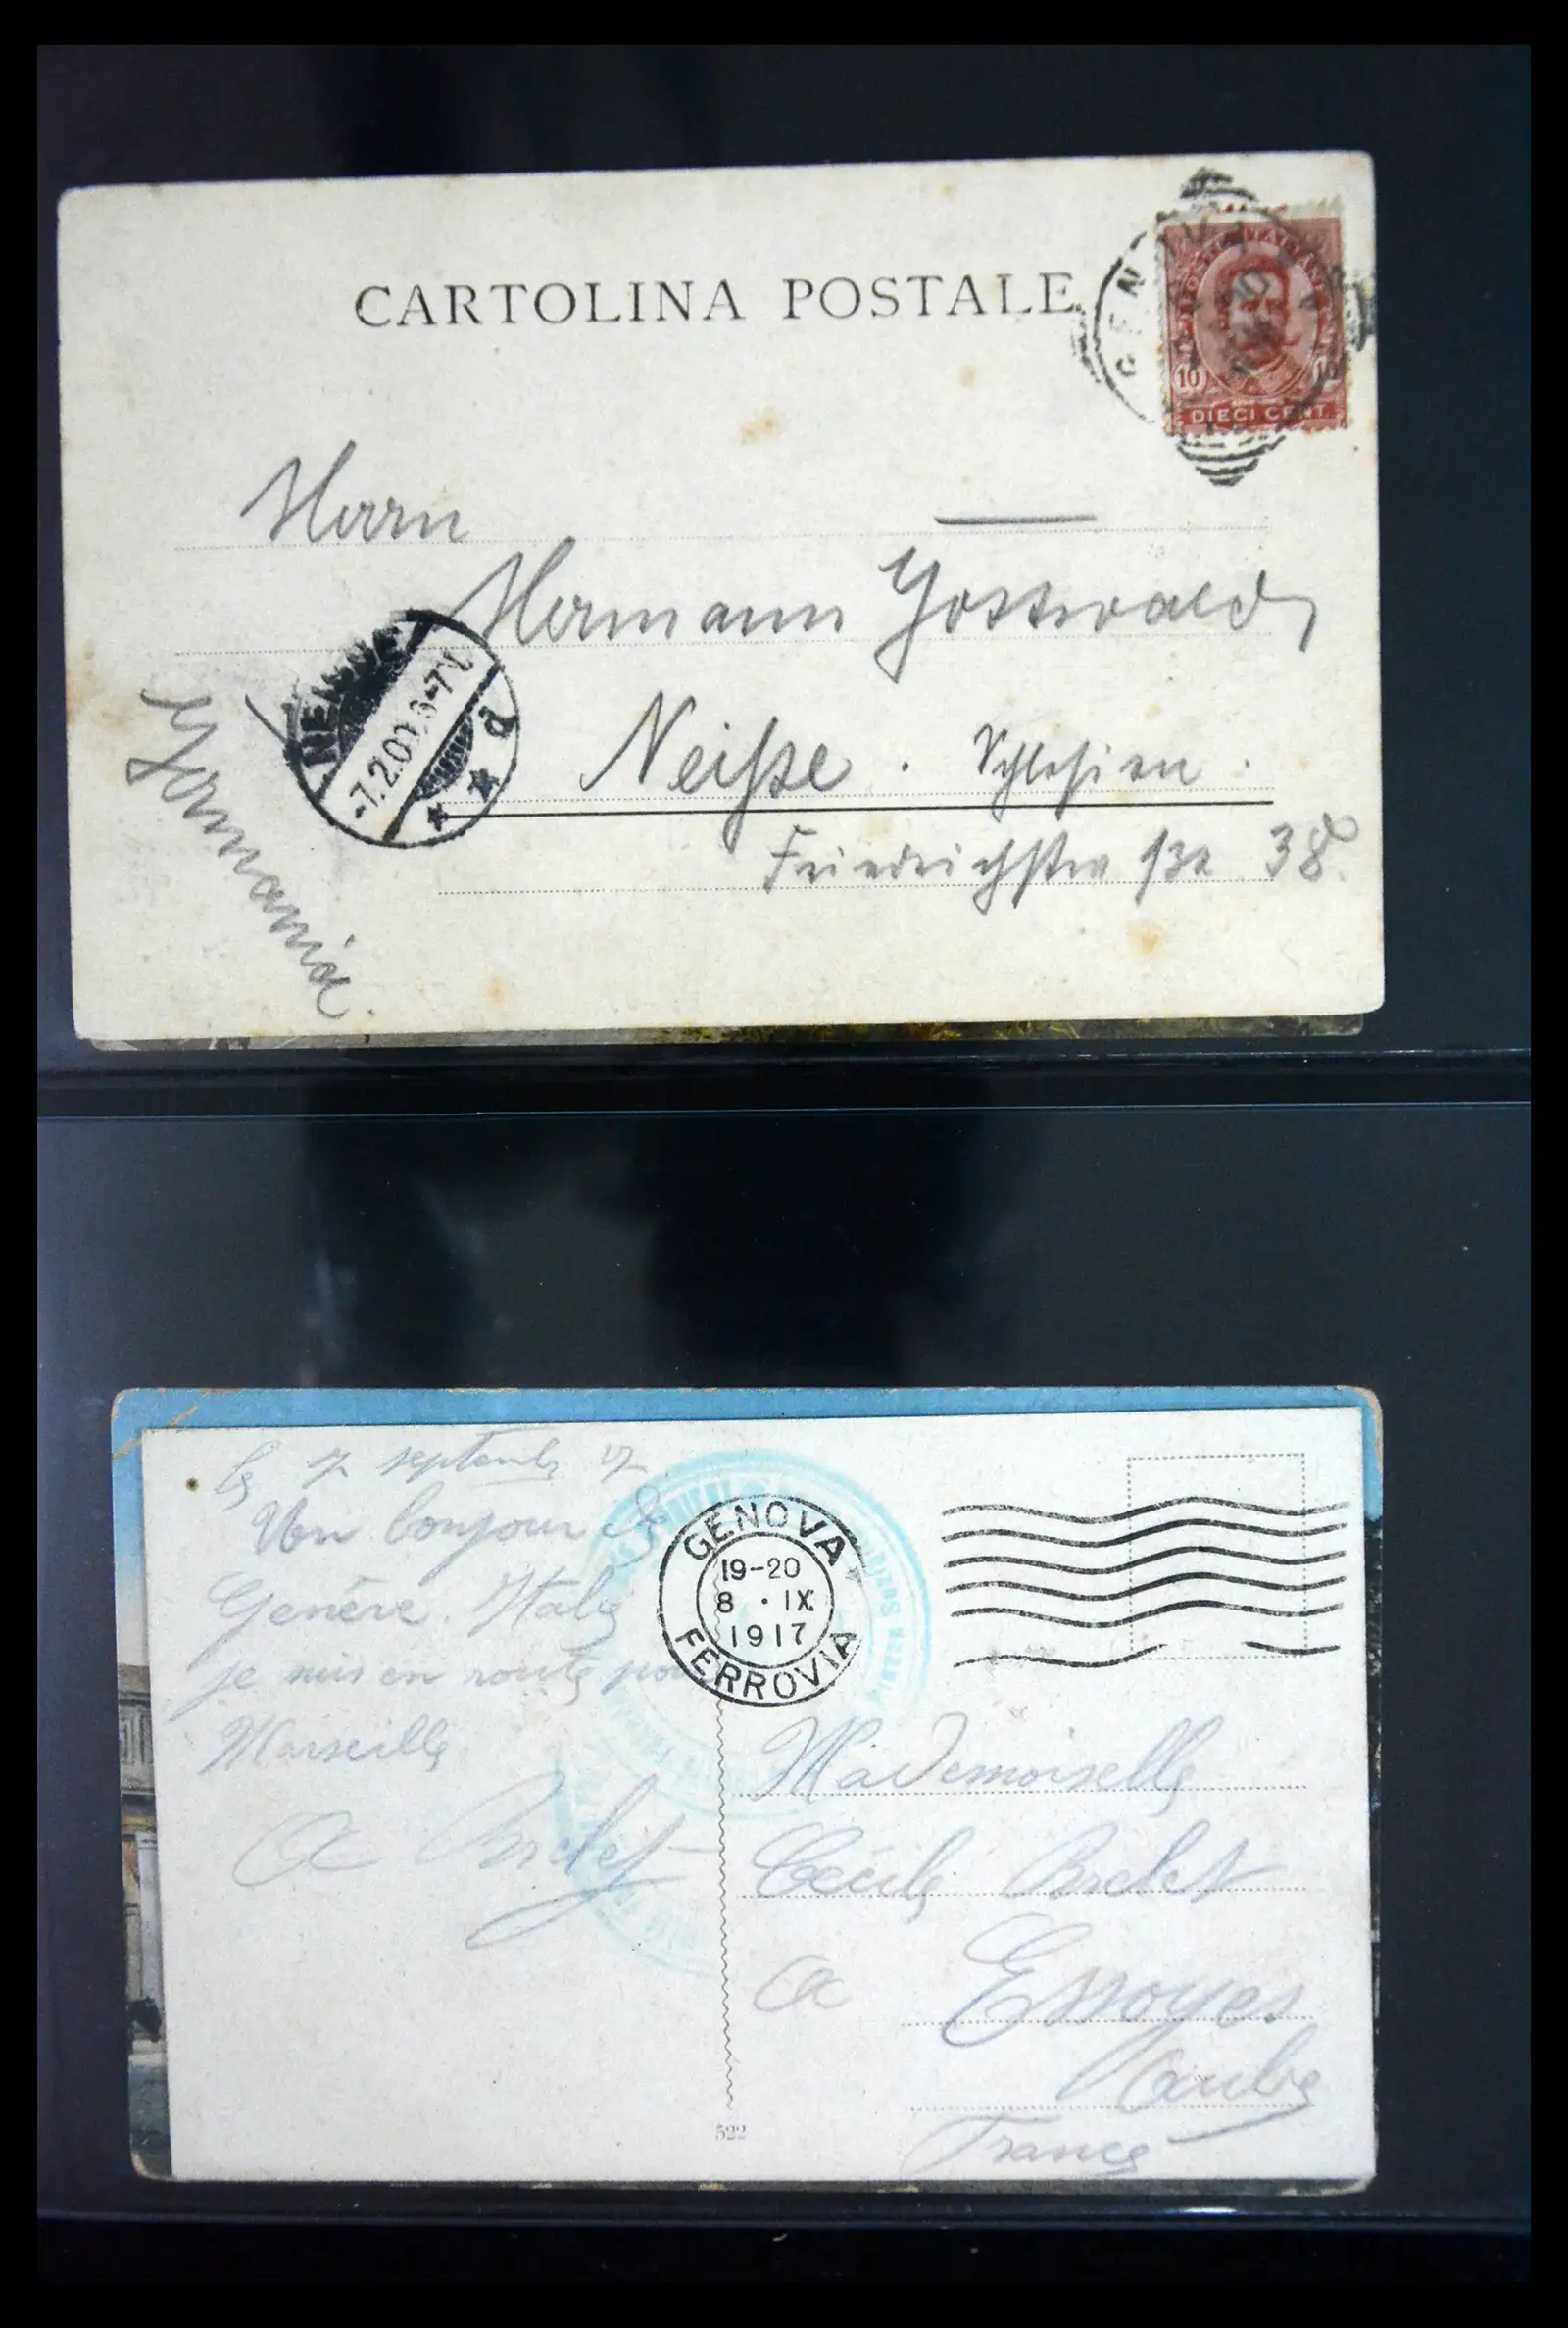 CARTOLINA POSTALE
POSTE ITALIANE
10 10
DIECI CENT.
Herrn
Hermann Gottwald
NEISSE
-7.2.00. 6-7V.
d
Neiße. Schlesien.
Friedrichstraße 38.
Germania.
le 17 septembre 17
Un bonjour de
Genève. Italie
je suis en route pour
Marseille
GENOVA
19-20
8 · IX
1917
FERROVIA
Mademoiselle
Cécile
a Essoyes
Aube
France
522